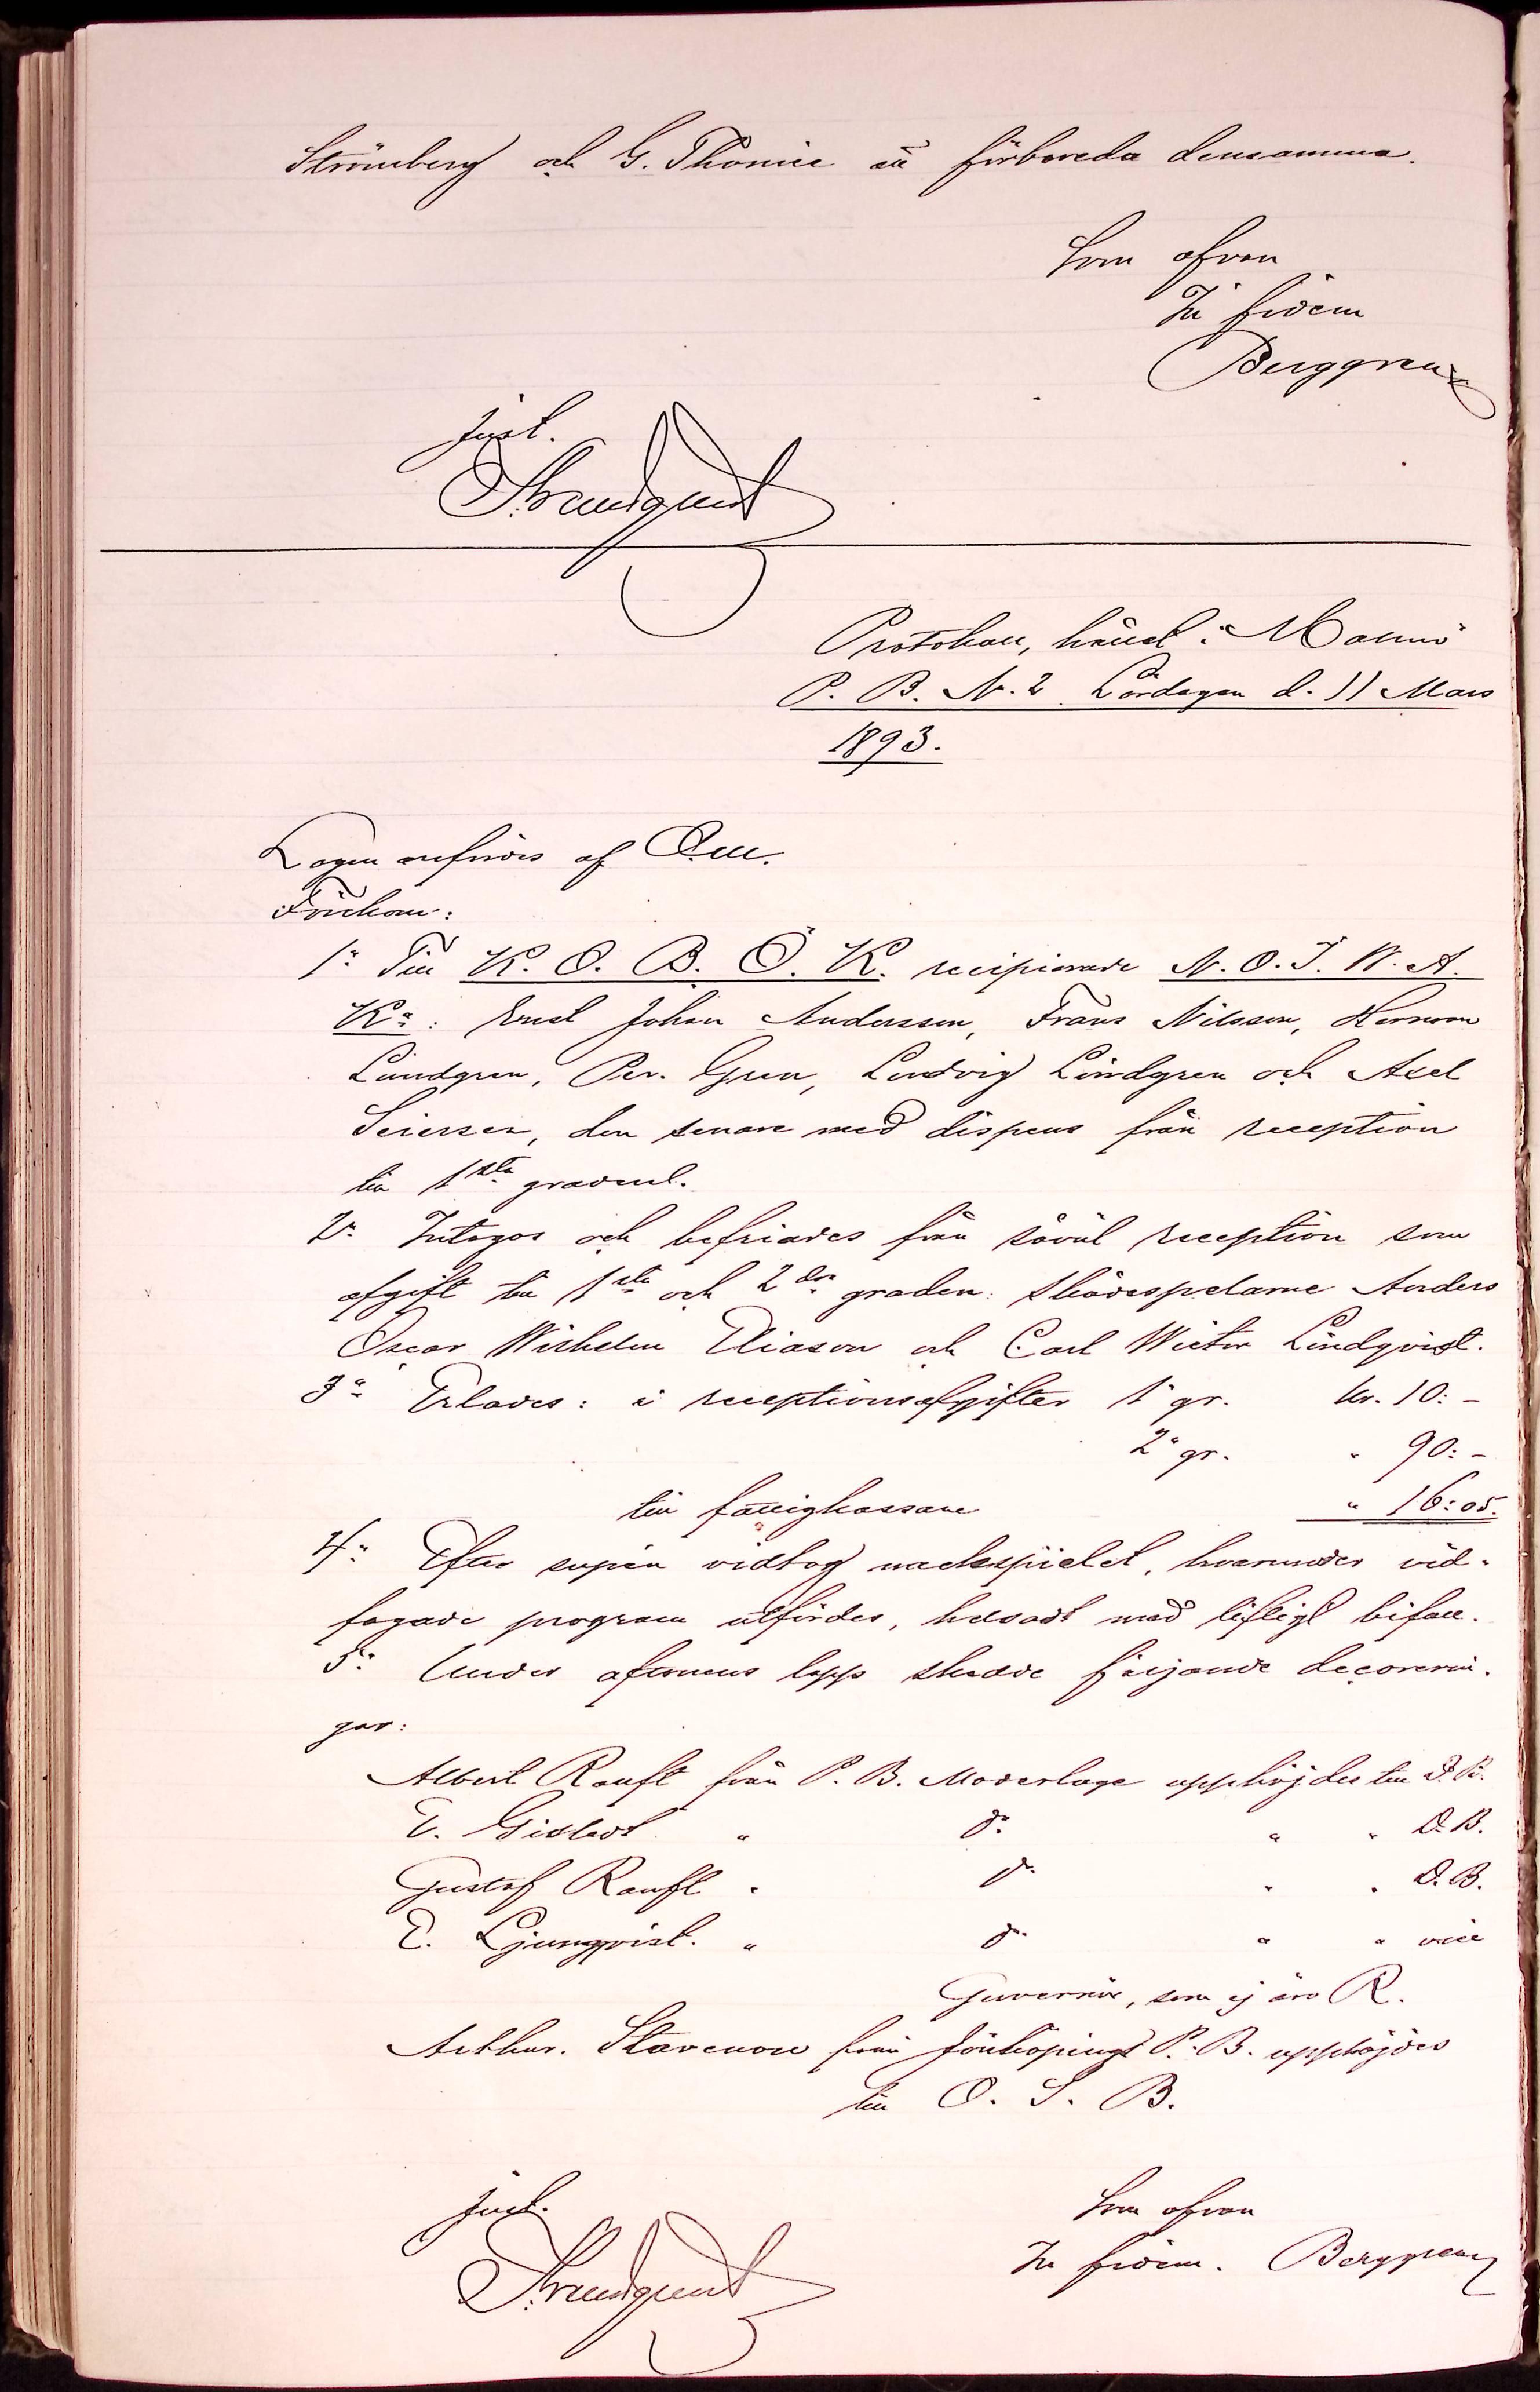 Strömberg och G. Thomée att förbereda densamma.
Som ofvan
In fidem
Berggren
Just.
Strandquist
Protokoll, hållet i Malmö
P. B. N. 2 Lördagen d. 11 Mars
1893.
Logen anfördes af O. M.
Förekom:
1:o Till K. O. B. Ö. K. recipierade N. O. J. W. A.
K:a: Ernst Johan Andersson, Frans Nilsson, Herman
Lundgren, Per. Gren, Ludvig Lindgren och Axel
Seiersen, den senare med dispens från reception
till 1sta graden.
2:o Intogos och befriades från såväl reception som
afgift till 1sta och 2dra graden: skådespelarne Anders
Oscar Wilhelm Eliason och Carl Wictor Lindqvist.
3:o Erlades: i receptionsafgifter 1:a gr. kr. 10: –
2:a gr. " 90: –
till fattigkassan " 16:05.
4:o Efter supén vidtog nachspielet, hvarunder vid-
fogade program utfördes, helsadt med lifligt bifall.
5:o Under aftonens lopp skedde följande decorerin-
gar:
Albert Ranft från P. B. Moderloge upphöjdes till O. B.
E. Gislert " d:o " " O. B.
Gustaf Ranft " d:o " " O. B.
E. Ljungqvist. " d:o " " vice
Guvernör, som ej äro R.
Arthur. Stavenow från Jönköpings P. B. upphöjdes
till O. S. B.
Just.
Strandquist
Som ofvan
In fidem. Berggren